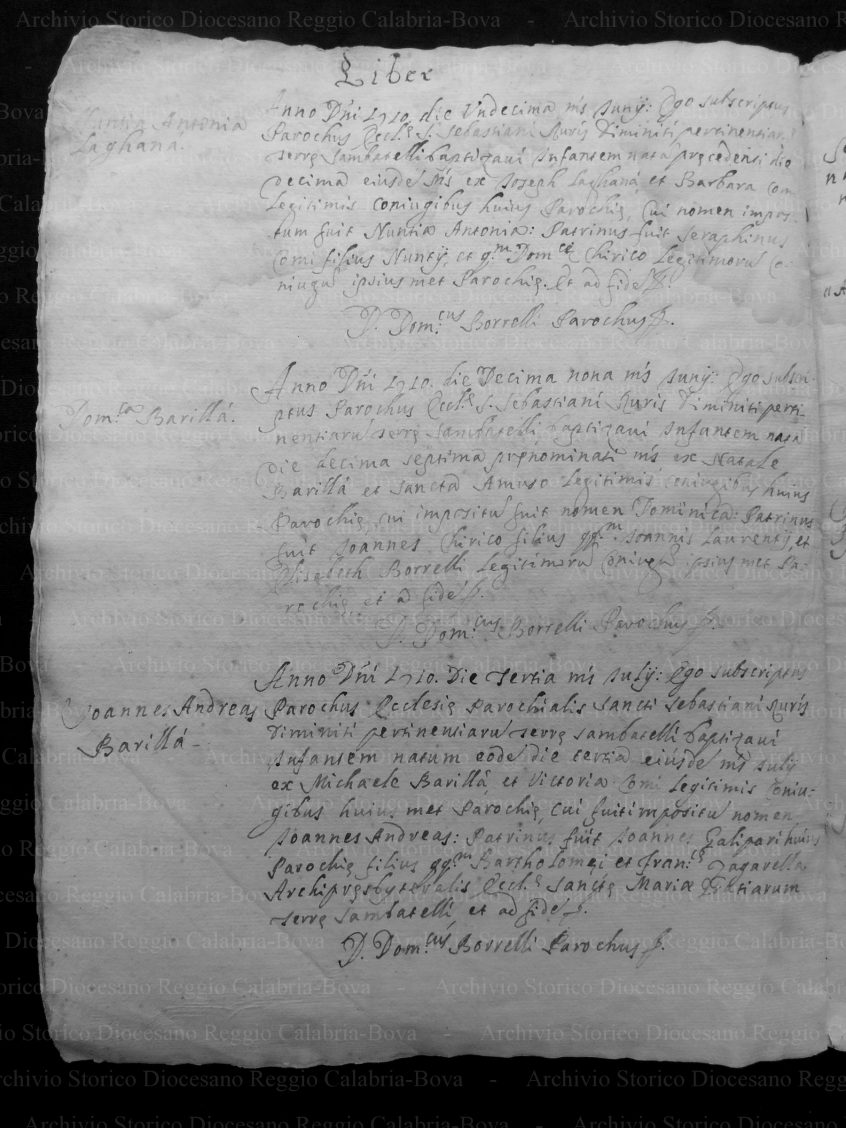 Liber
Nuntia Antonia
Laghana.
Anno Dñi 1710. die Undecima m̃s Junij: Ego subscriptus
Parochus Eccl.ę S. Sebastiani Ruris Diminiti pertinentiarũ
Terrę Sambatelli baptizavi Infantem natã pręcedenti die
Decima eiusdẽ m̃s ex Joseph Laghanà, et Barbara Comi
Legitimis Coniugibus huius Parochię, Cui nomen impos-
tum fuit Nuntia Antonia: Patrinus fuit Seraphinus
Comi filius Nuntij, et q.m Dom.cę Chirico Legitimorũ Co-
niugũ ipsius met Parochię. Et ad fidẽ
D. Dom.cus Borrelli Parochus
Dom.ca Barillá.
Anno Dñi 1710. die Decima nona m̃s Junij: Ego subscri-
ptus Parochus Eccl.ę S. Sebastiani Ruris Diminiti perti-
nentiarũ Terrę Sambatelli baptizavi Infantem natã
die decima septima pręnominati m̃s ex Natale
Barillá et Sancta Amuso Legitimis coniugibus huius
Parochię, cui impositũ fuit nomen Dominica: Patrinus
fuit Joannes Chirico filius qq.m Joannis Laurentij, et
Elisabeth Borrelli Legitimorũ Coniugũ ipsius met Pa-
rochię, et ad fidẽ
D. Dom.cus Borrelli Parochus
Joannes Andreas
Barillá
Anno Dñi 1710. Die Tertia m̃s Julij: Ego subscriptus
Parochus Ecclesię Parochialis Sancti Sebastiani Ruris
Diminiti pertinentiarũ Terrę Sambatelli baptizavi
Infantem natum eodẽ die tertia eiusdẽ m̃s Julij
ex Michaele Barillá, et Victoria Comi Legitimis Coniu-
gibus huius met Parochię, Cui fuit impositũ nomen
Joannes Andreas: Patrinus fuit Joannes Galipari huius
Parochię filius qq.m Bartholomęi et Fran.cę Zagarella
Archipręsbyteralis Eccl.ę Sanctę Marię
Terrę Sambatelli, et ad fidẽ
D. Dom.cus Borrelli Parochus